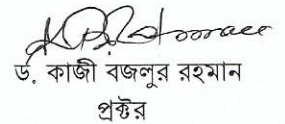 ড. কাজী বজলুর রহমান
প্রক্টর